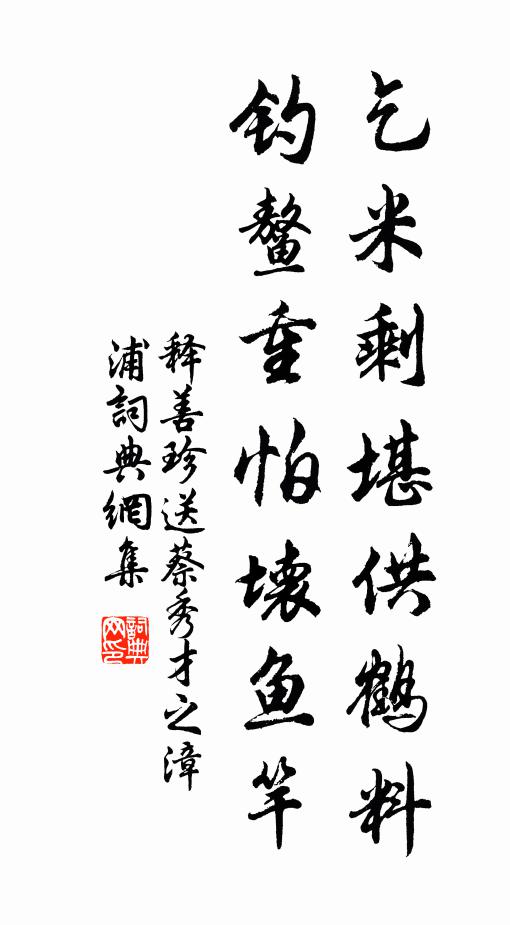 乞米剩堪供鹤料
钓鳌重怕壞鱼竿
释善珍送蔡秀才之漳
浦詞典網集
詞典
网印